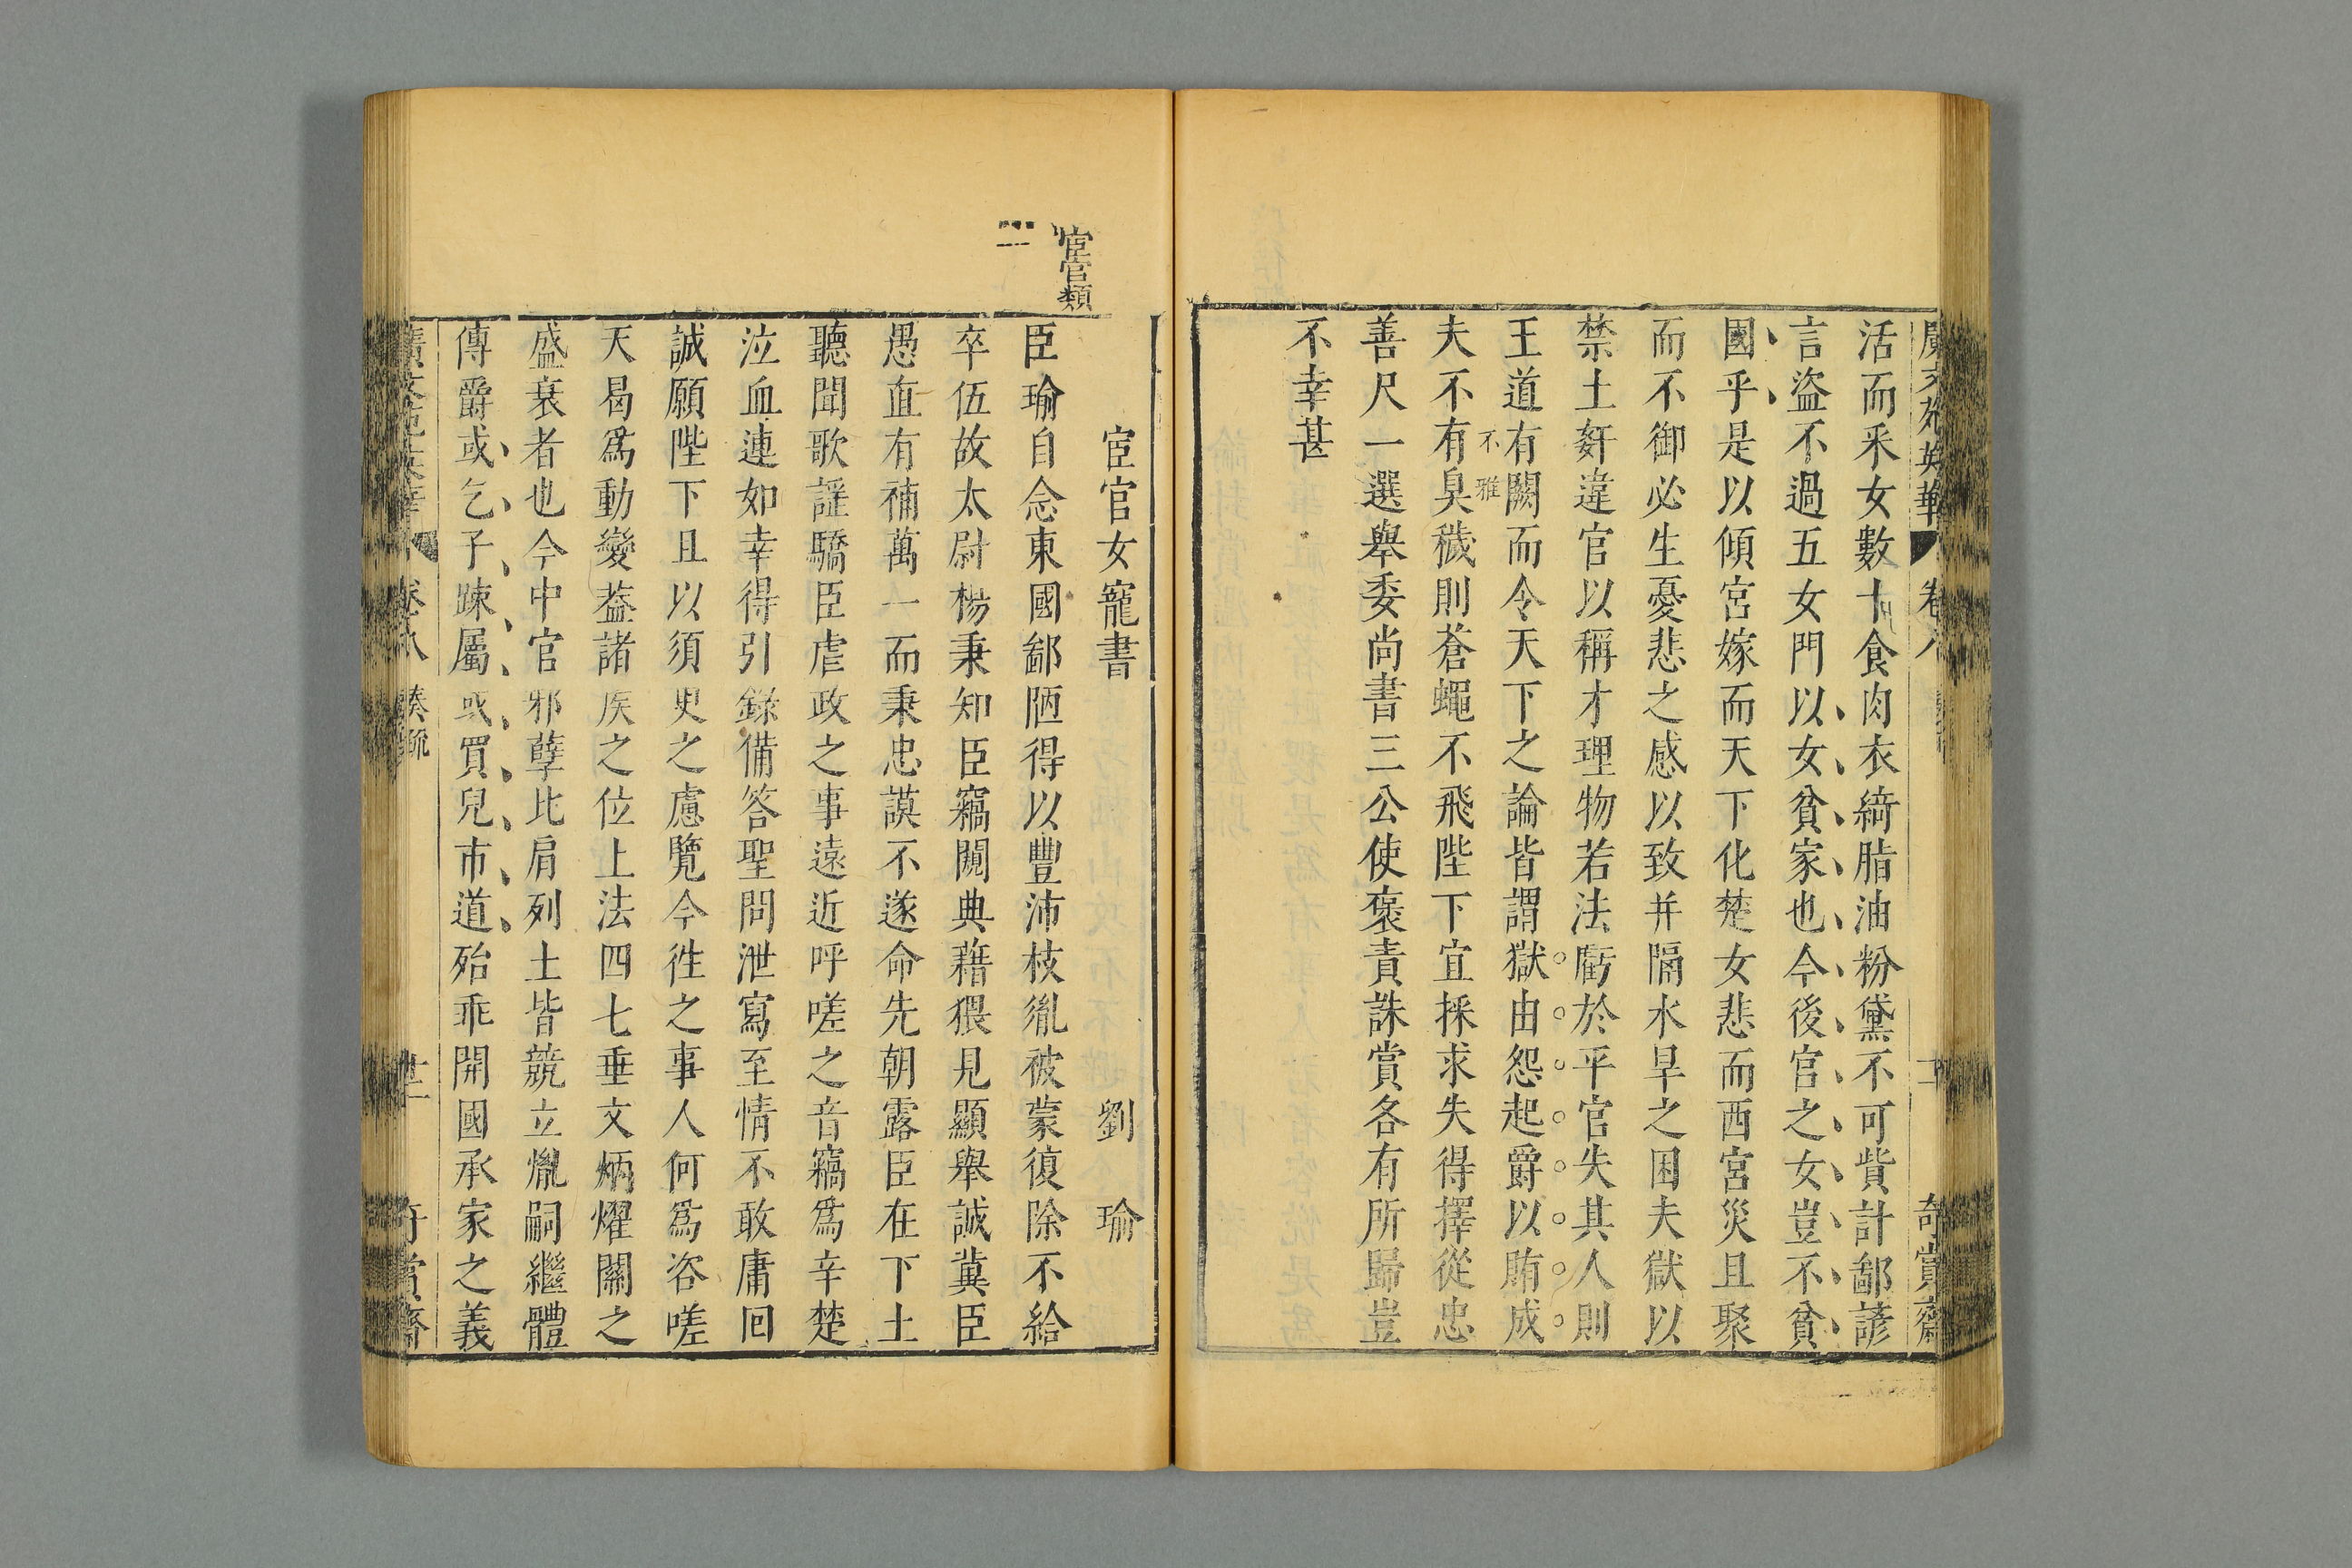 廣文苑英華 卷八 奇賞齋
活而采女數十食肉衣綺脂油粉黛不可貲計鄙諺
言盜不過五女門以女貧家也今後官之女豈不貧
國乎是以傾宮嫁而天下化楚女悲而西宮災且聚
而不御必生憂悲之感以致并隔水旱之困夫獄以
禁土姧違官以稱才理物若法虧於平官失其人則
王道有闕而令天下之論皆謂獄由怨起爵以賄成
不雅
夫不有臭穢則蒼蠅不飛陛下宜採求失得擇從忠
善尺一選舉委尚書三公使褒責誅賞各有所歸豈
不幸甚
宦官類
宦官女寵書 劉瑜
臣瑜自念東國鄙陋得以豐沛枝胤被蒙復除不給
卒伍故太尉楊秉知臣竊闚典藉猥見顯舉誠冀臣
愚直有補萬一而秉忠謨不遂命先朝露臣在下土
聽聞歌謡驕臣虐政之事遠近呼嗟之音竊爲辛楚
泣血連如幸得引錄備答聖問泄寫至情不敢庸回
誠願陛下且以須臾之慮覽今徃之事人何爲咨嗟
天曷爲動變葢諸矦之位上法四七垂文炳燿關之
盛衰者也今中官邪孽比肩列土皆競立胤嗣繼體
傳爵或乞子踈屬或買兒市道殆乖開國承家之義
廣文苑英華 卷八 奏疏 奇賞齋